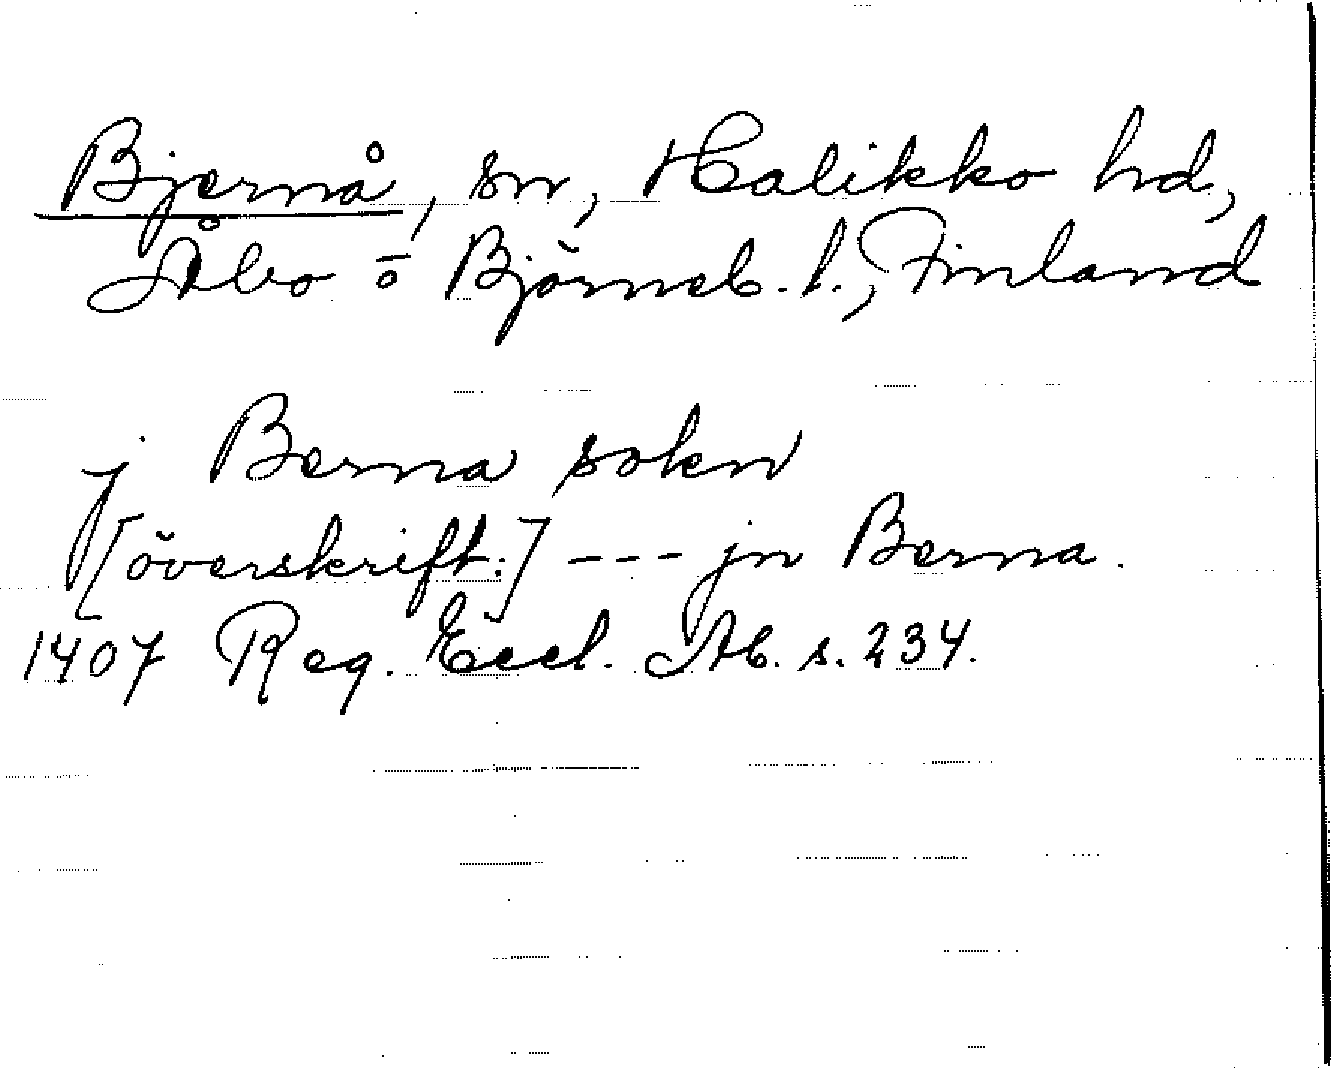 Bjernå, sn, Halikko hd,
Åbo o Björneb. l., Finland
j Berna sokn
[överskrift:] --- jn Berna.
1407 Reg. Eccl. Ab. s. 234.